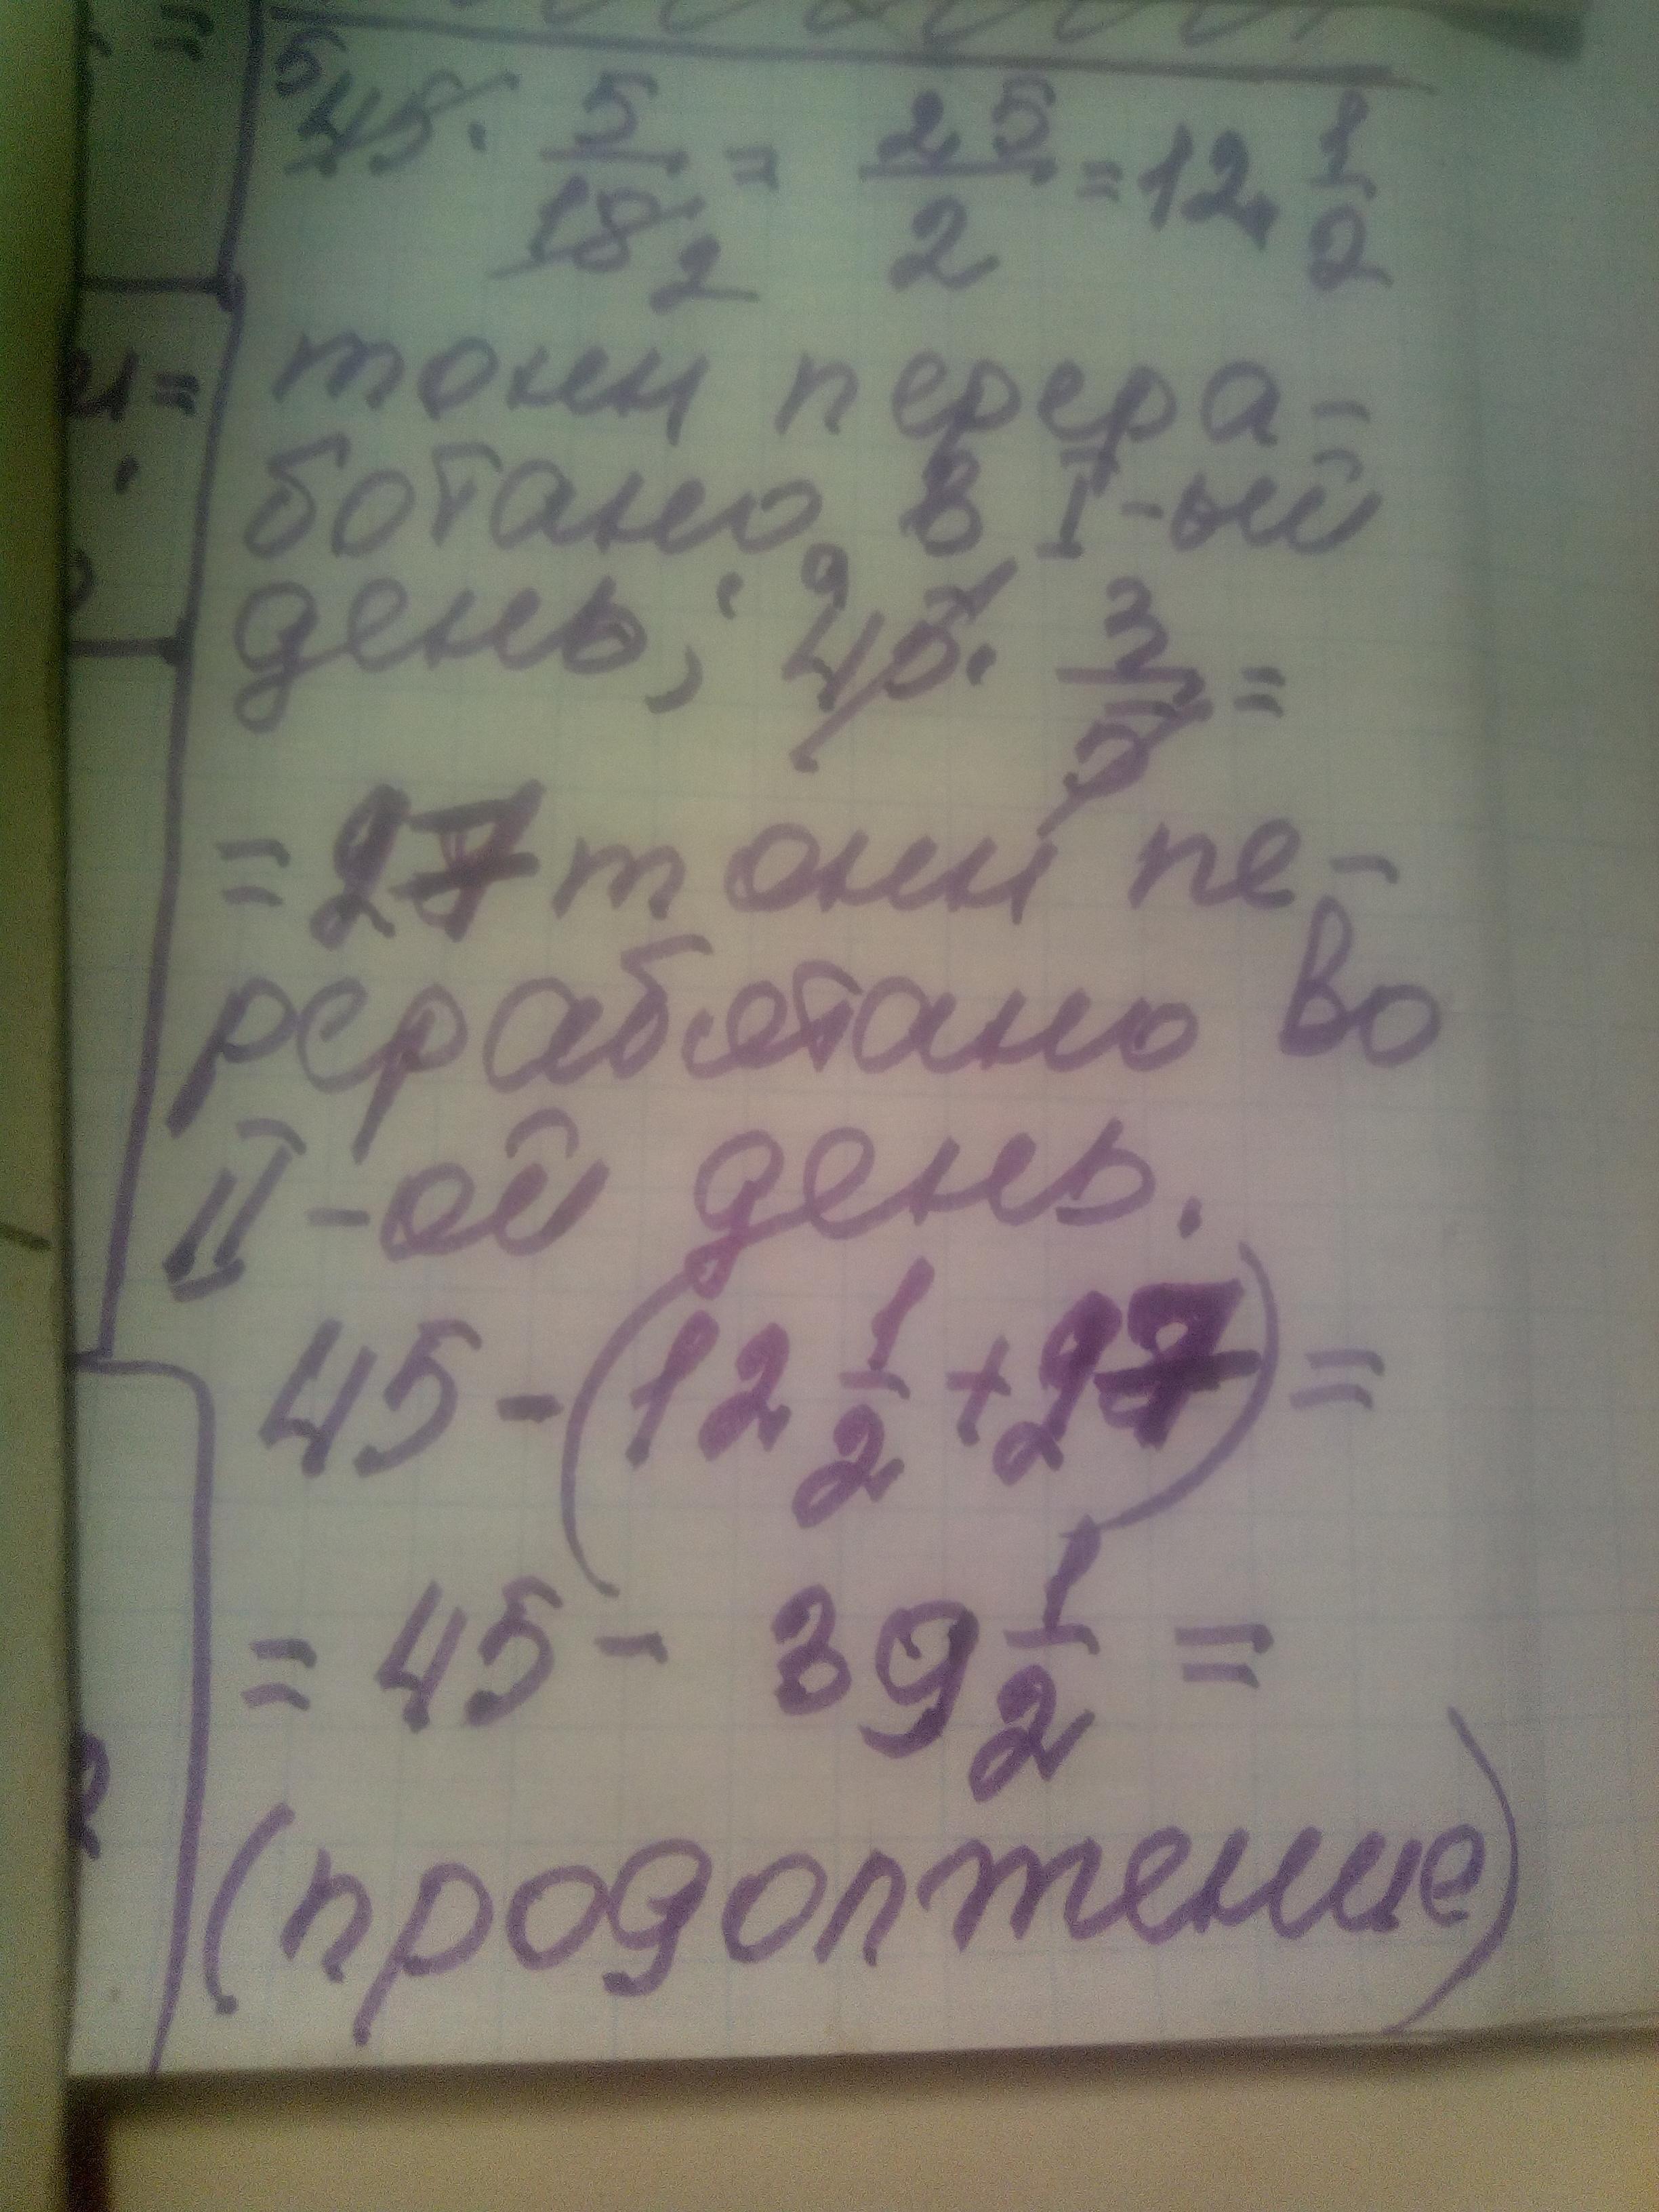 45 · 5/18 = 25/2 = 12 1/2
5
2
тонн перера-
ботано в I-ый
день; 45 · 3/5 =
9
= 27 тонн пе-
реработано во
II-ой день.
45 - (12 1/2 + 27) =
= 45 - 39 1/2 =
(продолжение)